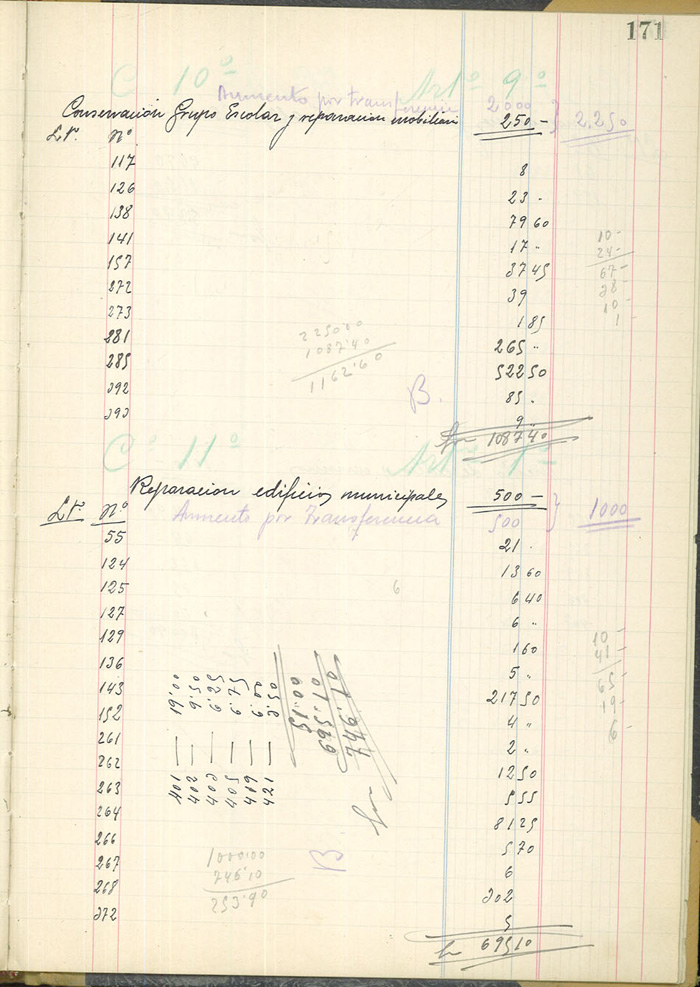 171
C 10º Artº 9º
Aumento por transferencia 2000
Conservacion Grupo Escolar y reparacion mobiliario 250 - 2.250
Lt. Nº
117 8
126 23 .
138 79 60
141 17 "
157 37 45
272 39
273 1 85
281 265 "
285 522 50
392 85 .
393 9 "
1087 40
10 -
24 -
67 -
28 -
10 -
1 -
2250'00
1087'40
1162'60
B.
Cº 11º Artº 1º
Reparacion edificios municipales 500 -
Lt. Nº Aumento por Transferencia 500 1000
55 21 .
124 13 60
125 6 40
127 6 "
129 1 60
136 5 "
143 217 50
152 4 "
261 2 "
262 12 50
263 5 55
264 81 25
266 5 70
267 6
268 302
372 5
695 10
6
10 -
41 -
65 -
19 -
6 -
401 — 19.00
402 — 9.50
403 — 6.25
405 — 6.75
419 — 6.00
421 — 3.50
51.00
695.10
746.10
1000.00
746.10
253.90
B